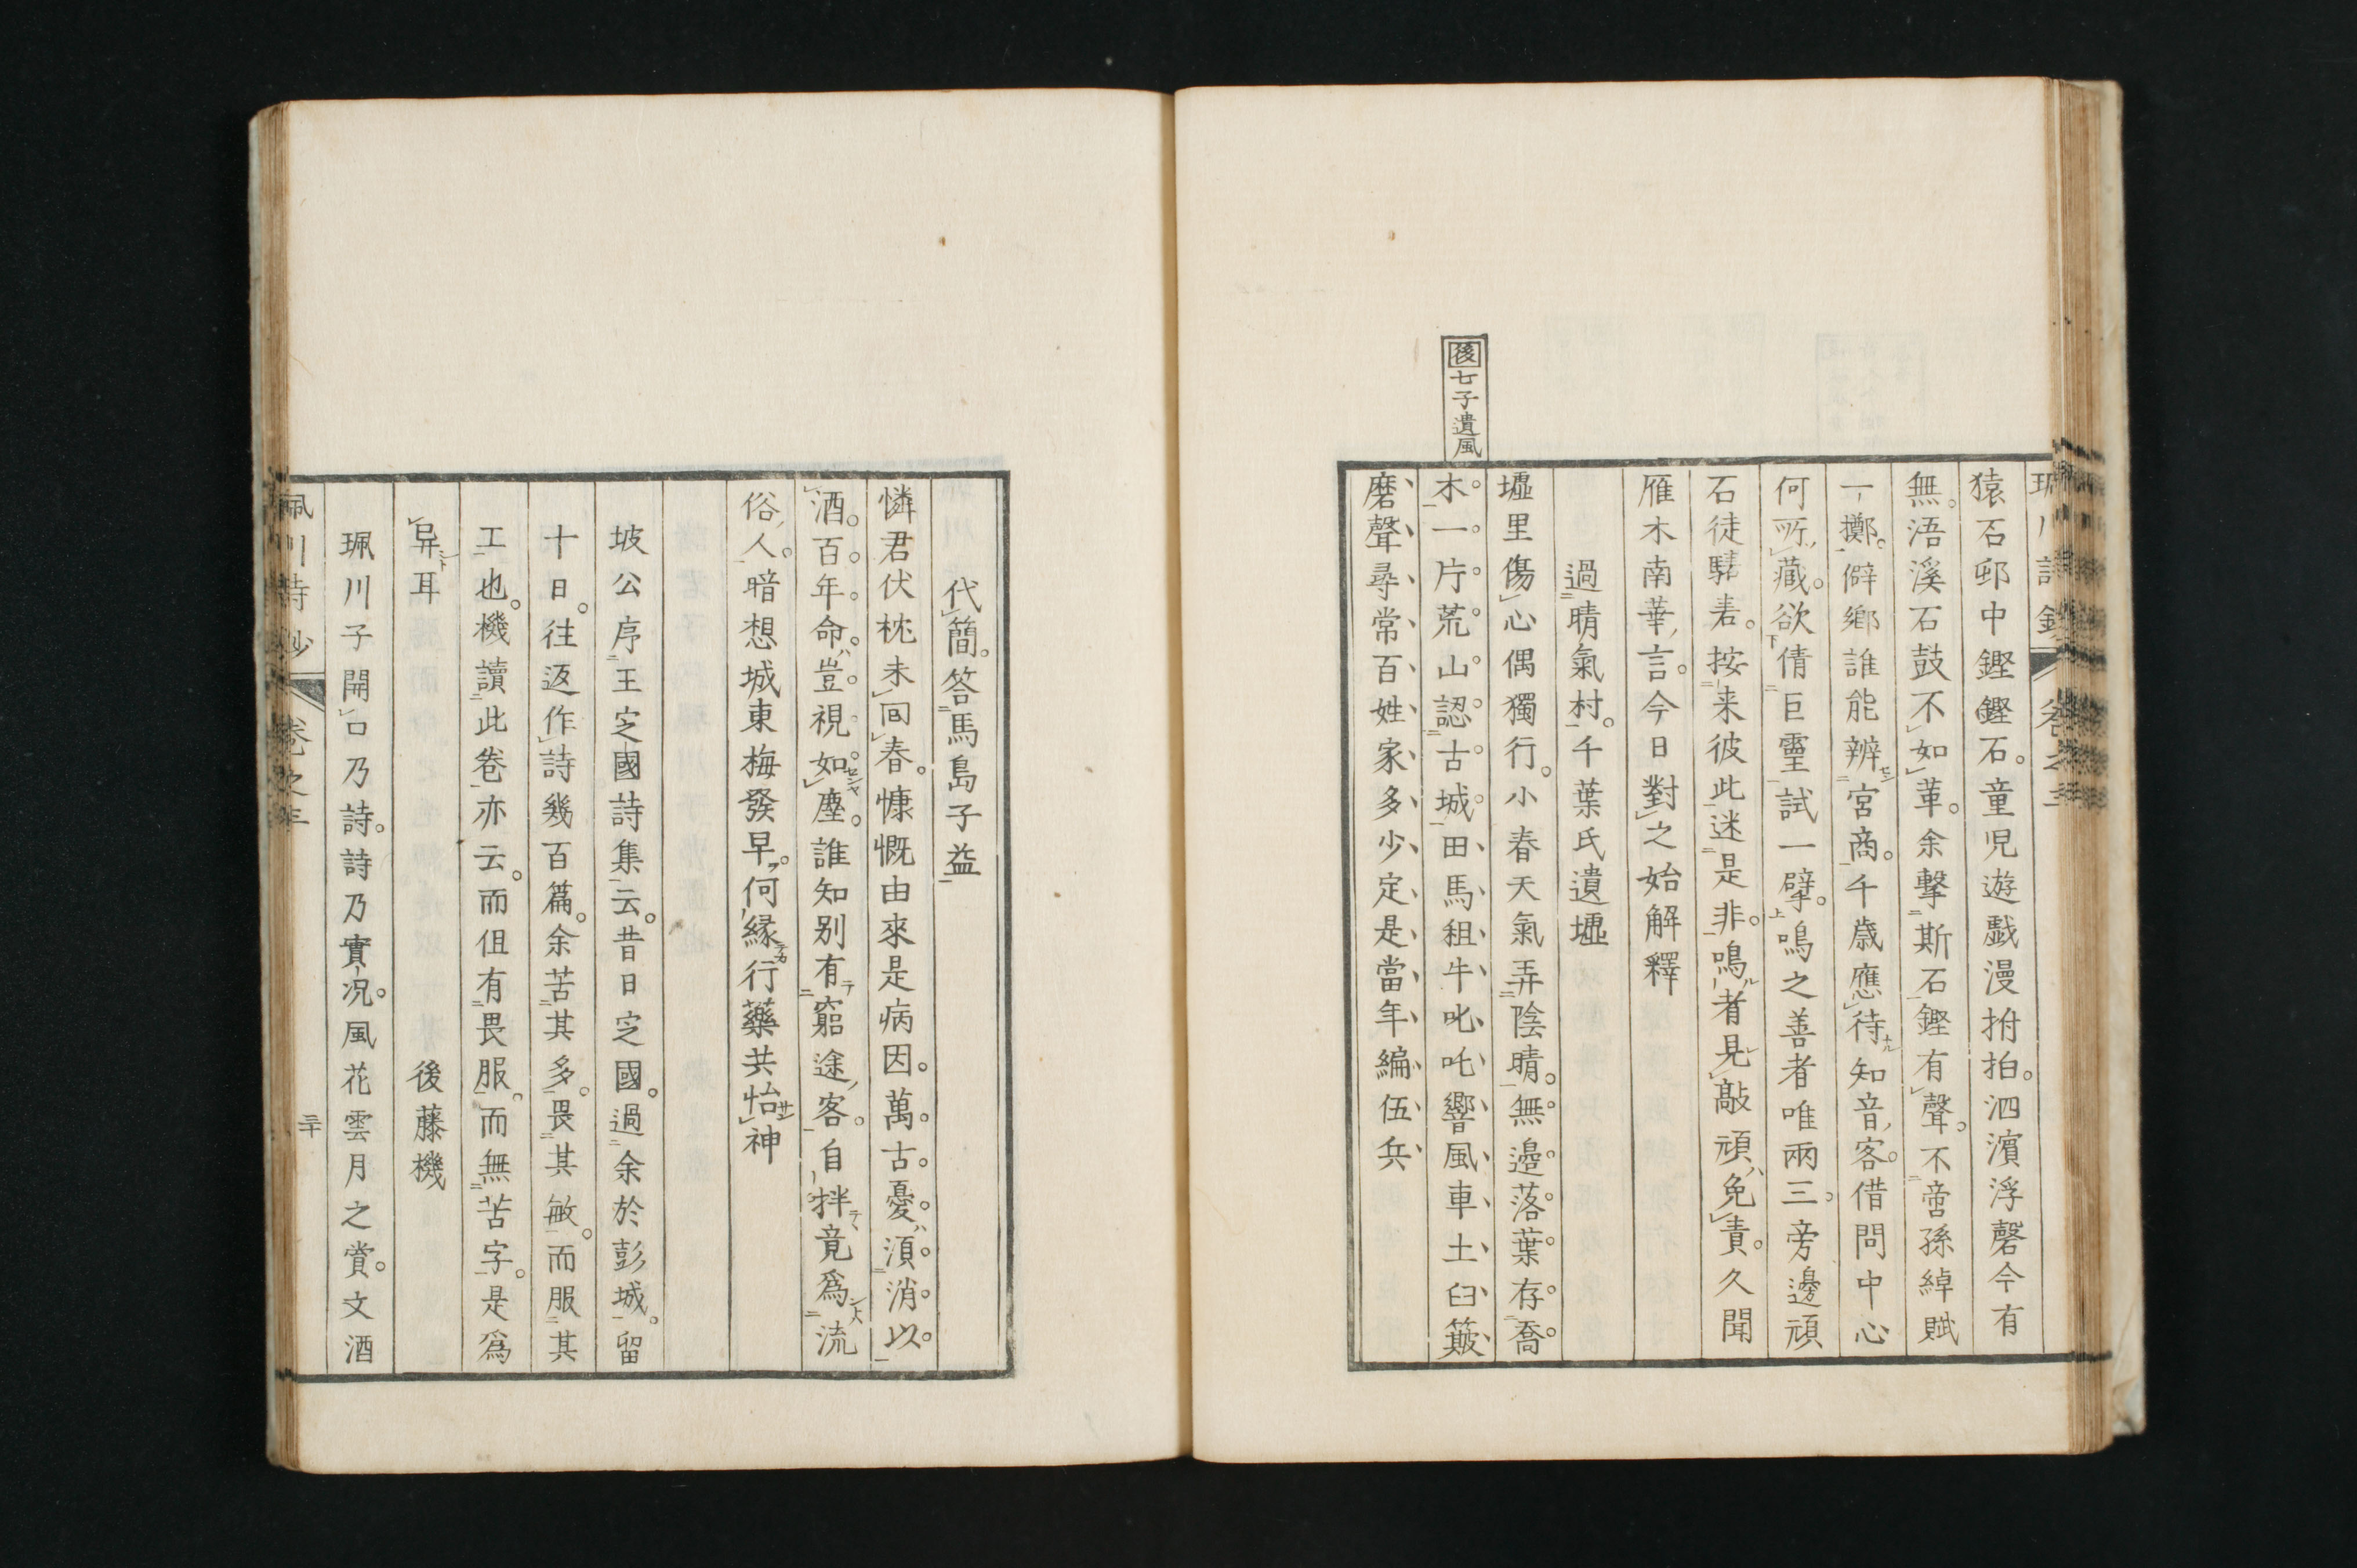 珮川詩鈔 卷之三
猿石邨中鏗鏗石。童児遊戯漫拊拍。泗濱浮磬今有
無。浯溪石鼓不如革。余擊斯石鏗有聲。不啻孫綽賦
一擲。僻鄉誰能辨宮商。千歳應待知音客。借問中心
何所藏。欲倩巨靈試一擘。鳴之善者唯兩三。旁邊頑
石徒騞砉。按来彼此迷是非。鳴者見敲頑免責。久聞
雁木南華言。今日對之始解釋
過晴氣村。千葉氏遺墟
墟里傷心偶獨行。小春天氣弄陰晴。無邊落葉存喬
後七子遺風
木。一片荒山認古城。田馬組牛叱吒響風車土臼簸
磨聲尋常百姓家多少定是當年編伍兵
代簡。答馬島子益
憐君伏枕未回春。慷慨由來是病因。萬古憂須消以
酒。百年命豈視如塵。誰知別有窮途客。自拌竟爲流
俗人。暗想城東梅發早。何縁行藥共怡神
坡公序王定國詩集云。昔日定國。過余於彭城。留
十日。往返作詩幾百篇。余苦其多。畏其敏。而服其
工也。機讀此卷亦云。而伹有畏服。而無苦字。是爲
异耳 後藤機
珮川子開口乃詩。詩乃實况。風花雲月之賞。文酒
珮川詩鈔 卷之三 三十